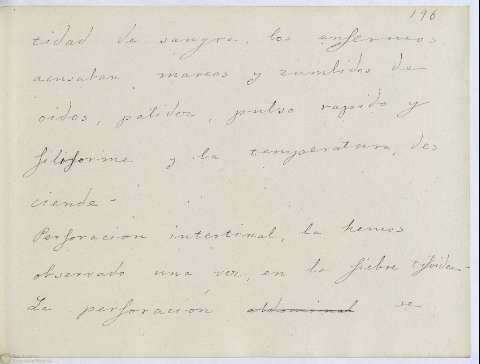 196
tidad de sangre, los enfermos
acusaban mareos y zumbidos de
oidos, palidez, pulso rapido y
filiforme y la temperatura, des
ciende.
Perforacion intertinal, la hemos
observado una vez, en la fiebre tifoidea.
La perforación abdominal se